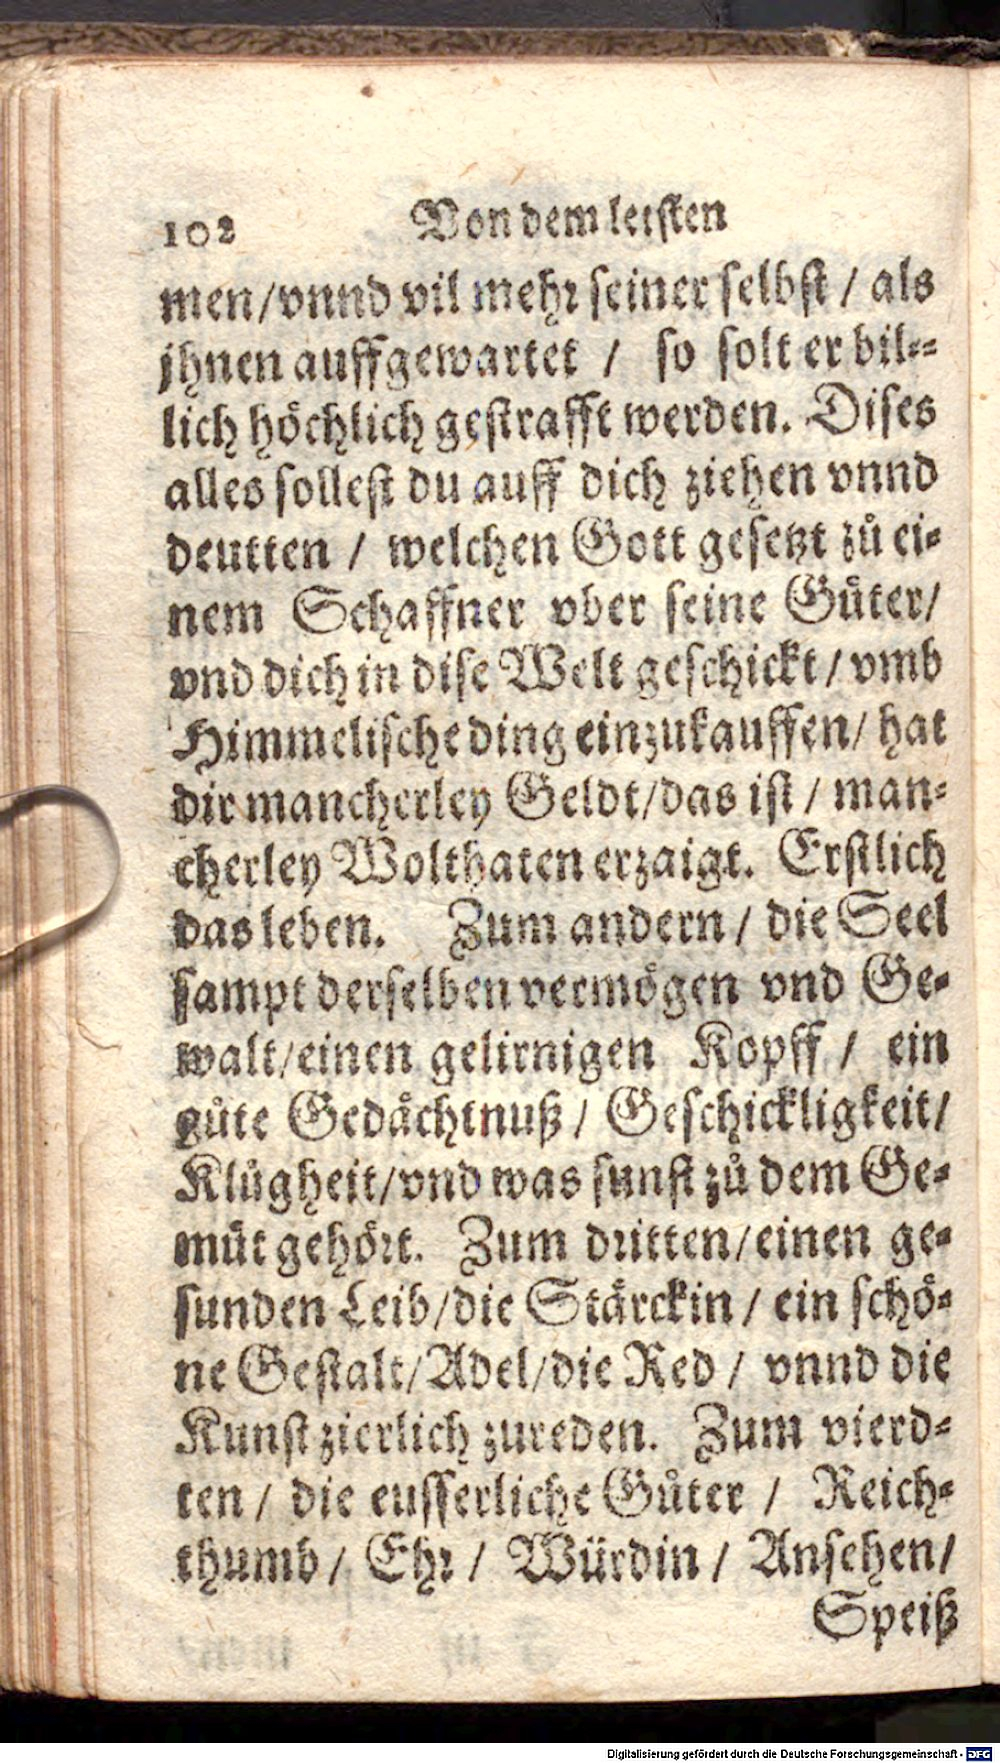 102 Von dem letsten
men/vnnd vil mehr seiner selbst / als
jhnen auffgewartet / so solt er bil⸗
lich höchlich gestrafft werden. Dises
alles sollest du auff dich ziehen vnnd
deutten / welchen Gott gesetzt zů ei⸗
nem Schaffner vber seine Gůter/
vnd dich in dise Welt geschickt / vmb
Himmelische ding einzukauffen/ hat
dir mancherley Geldt/das ist / man⸗
cherley Wolthaten erzaigt. Erstlich
das leben. Zum andern / die Seel
sampt derselben vermögen vnd Ge⸗
walt/einen gelirnigen Kopff / ein
gůte Gedächtnuß / Geschickligkeit/
Klůgheit/vnd was sunst zů dem Ge⸗
můt gehört. Zum dritten/einen ge⸗
sunden Leib/die Stärckin / ein schö⸗
ne Gestalt/Adel/die Red / vnnd die
Kunst zierlich zureden. Zum vierd⸗
ten / die eusserliche Gůter / Reich⸗
thumb / Ehr / Würdin / Ansehen/
Speiß
Digitalisierung gefördert durch die Deutsche Forschungsgemeinschaft - DFG